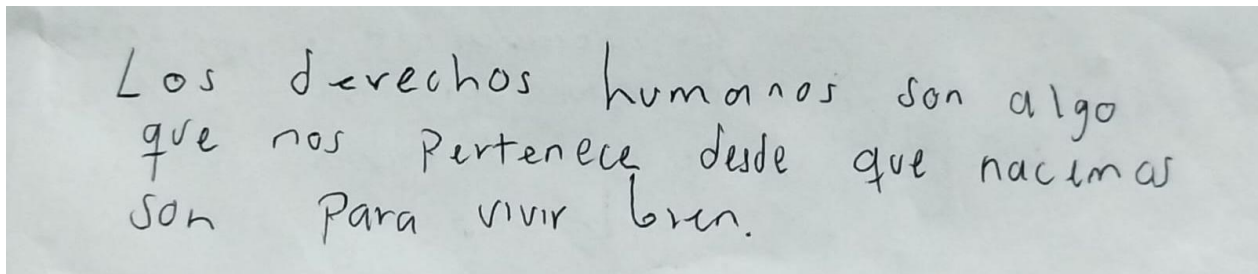 Los derechos humanos son algo
que nos Pertenece desde que nacimos
son Para vivir bien.